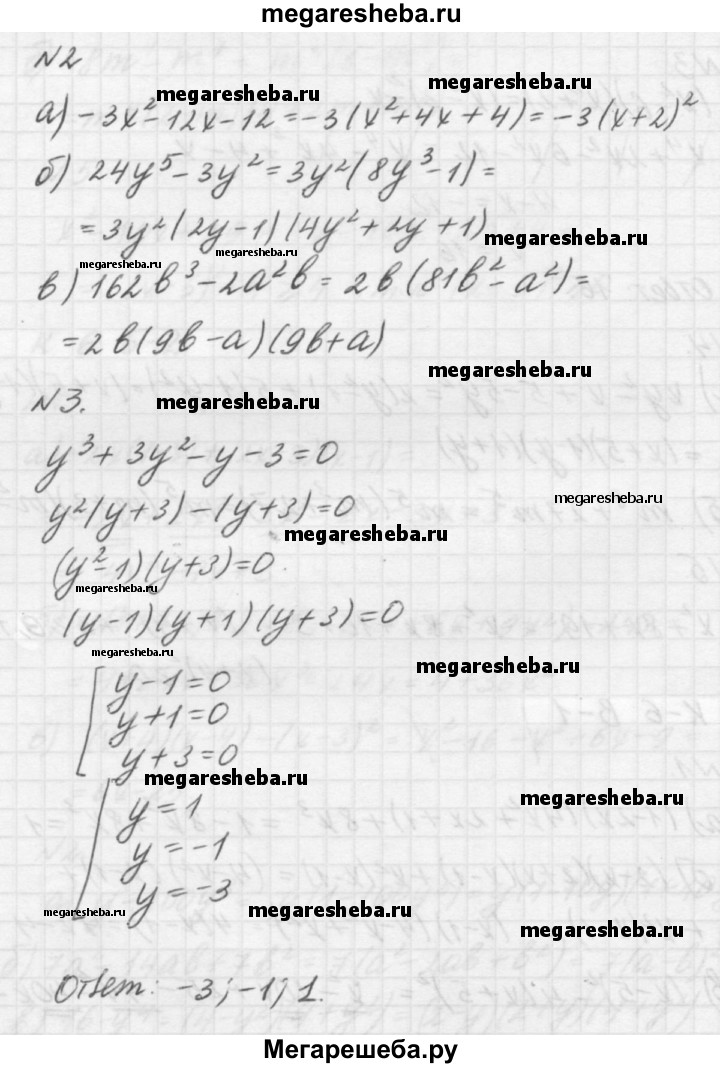 megaresheba.ru
N2
megaresheba.ru
megaresheba.ru
а) -3x²-12x-12=-3(x²+4x+4)=-3(x+2)²
б) 24y⁵-3y²=3y²(8y³-1)=
=3y²(2y-1)(4y²+2y+1)
megaresheba.ru
megaresheba.ru
megaresheba.ru
в) 162b³-2a²b=2b(81b²-a²)=
=2b(9b-a)(9b+a)
megaresheba.ru
N3.
megaresheba.ru
y³+3y²-y-3=0
megaresheba.ru
y²(y+3)-(y+3)=0
megaresheba.ru
(y²-1)(y+3)=0
megaresheba.ru
(y-1)(y+1)(y+3)=0
megaresheba.ru
megaresheba.ru
y-1=0
y+1=0
y+3=0
megaresheba.ru
megaresheba.ru
y=1
y=-1
y=-3
megaresheba.ru
megaresheba.ru
Ответ: -3; -1; 1.
megaresheba.ru
Мегарешеба.ру